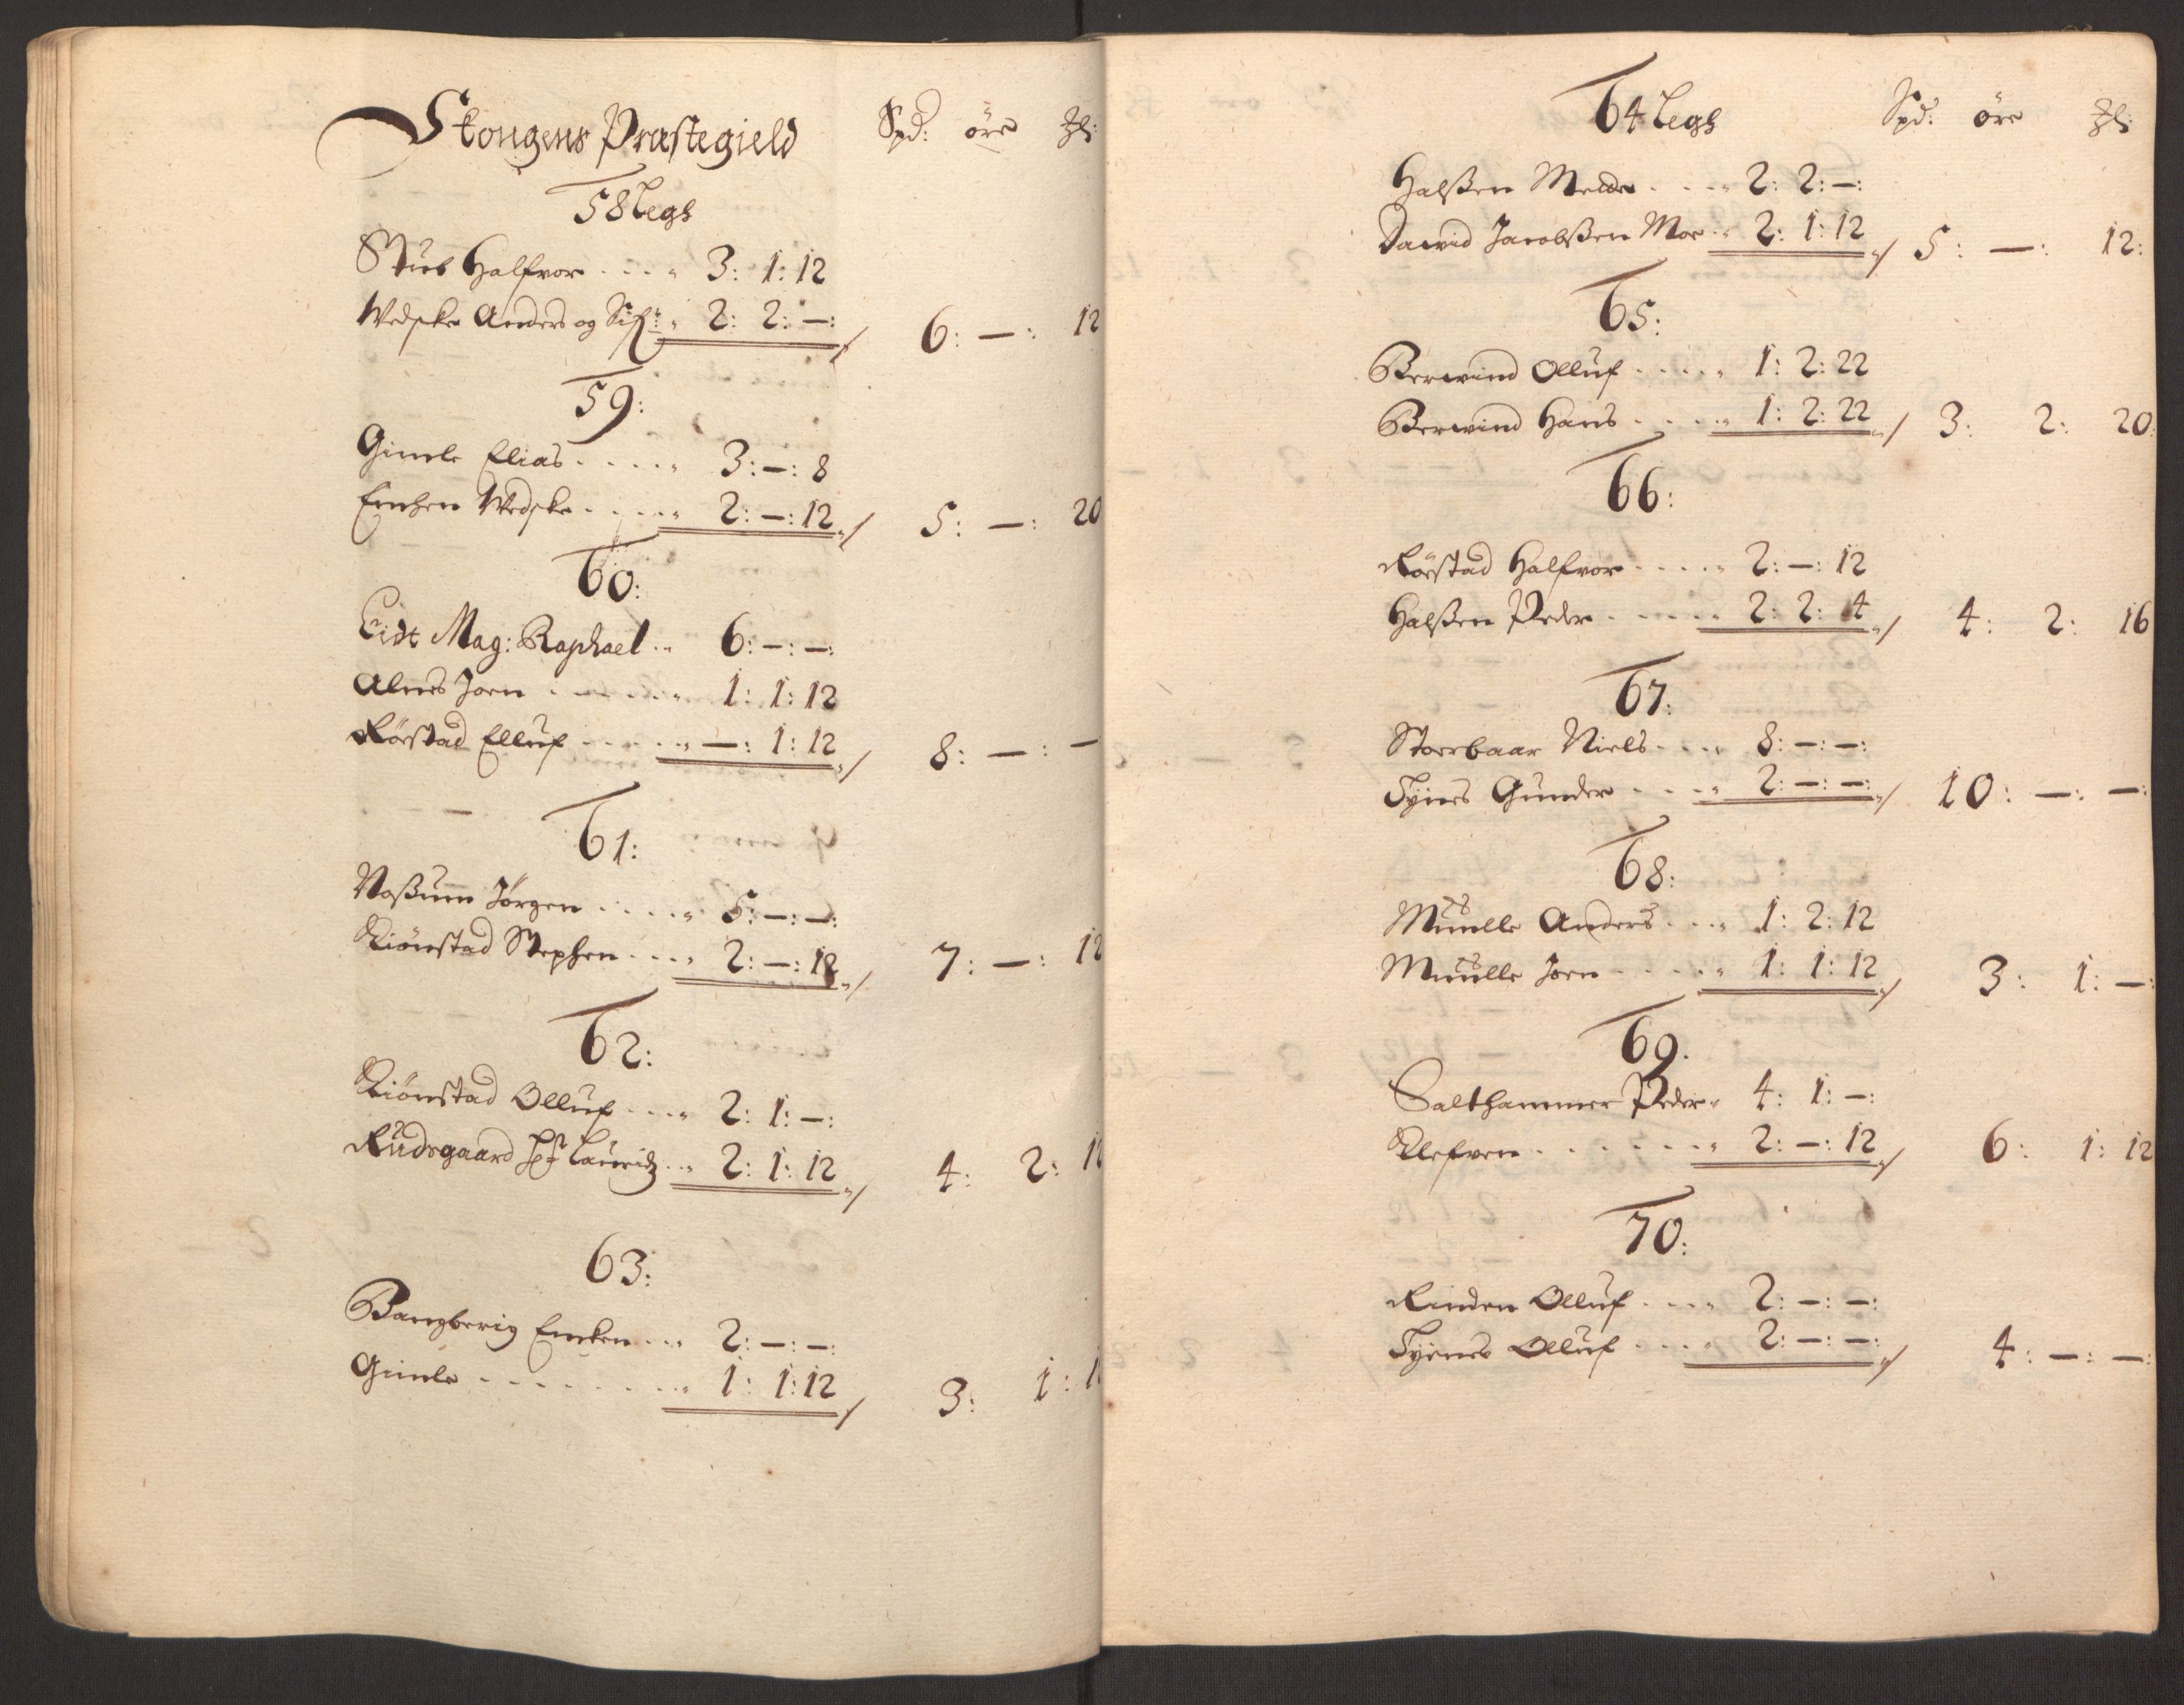 Stongens Præstegield Spd: öre
58 Legh
Stub Halfvor . . . . 3: 1: 12
Wedske Anders og 2: 2: —: 6: —: 12
59:
Gimle Elias . . . . . 3: —: 8
Emken Wedske . . . . . 2: —: 12 5: —: 20
60:
Eidt Mag: Raphael . . 6: —: —:
Alnes Joen . . . . . . 1: 1: 12
Rörstad Elluf . . . . . —: 1: 12 8: —: —
61:
Noßum Jörgen . . . . . 5: —: —:
Kiönstad Stephen . . . . 2: —: 12 7: —: 12
62:
Kiönstad Olluf . . . . 2: 1: —:
Rüdsgaard Laurids . . . 2: 1: 12 4: 2: 12
63:
Bangberig Emken . . . 2: —: —:
Gimle . . . . . . . . . 1: 1: 12 3: 1: 1
64 Legh Spd: öre
Halßen Meldor . . . . 2: 2: —:
David Jacobßen Moe . . 2: 1: 12 5: —: 12:
65:
Berwind Olluf . . . . . 1: 2: 22
Berwind Hans . . . . . 1: 2: 22 3: 2: 20:
66:
Rörstad Halfvor . . . . . 2: —: 12
Halßen Peder . . . . . . 2: 2: 4 4: 2: 16
67:
Storrbaar Niels . . . . 8: —: —:
Tÿnes Gunder . . . . 2: —: —: 10: —: —:
68:
Müulle Anders . . . . 1: 2: 12
Müulle Joen . . . . . 1: 1: 12 3: 1: —:
69.
Salthammer Peder 4: 1: —:
Klefven . . . . . . . . 2: —: 12 6: 1: 12
70:
Rinden Olluf . . . . 2: —: —:
Tÿenes Olluf . . . . . 2: —: —: 4: —: —: